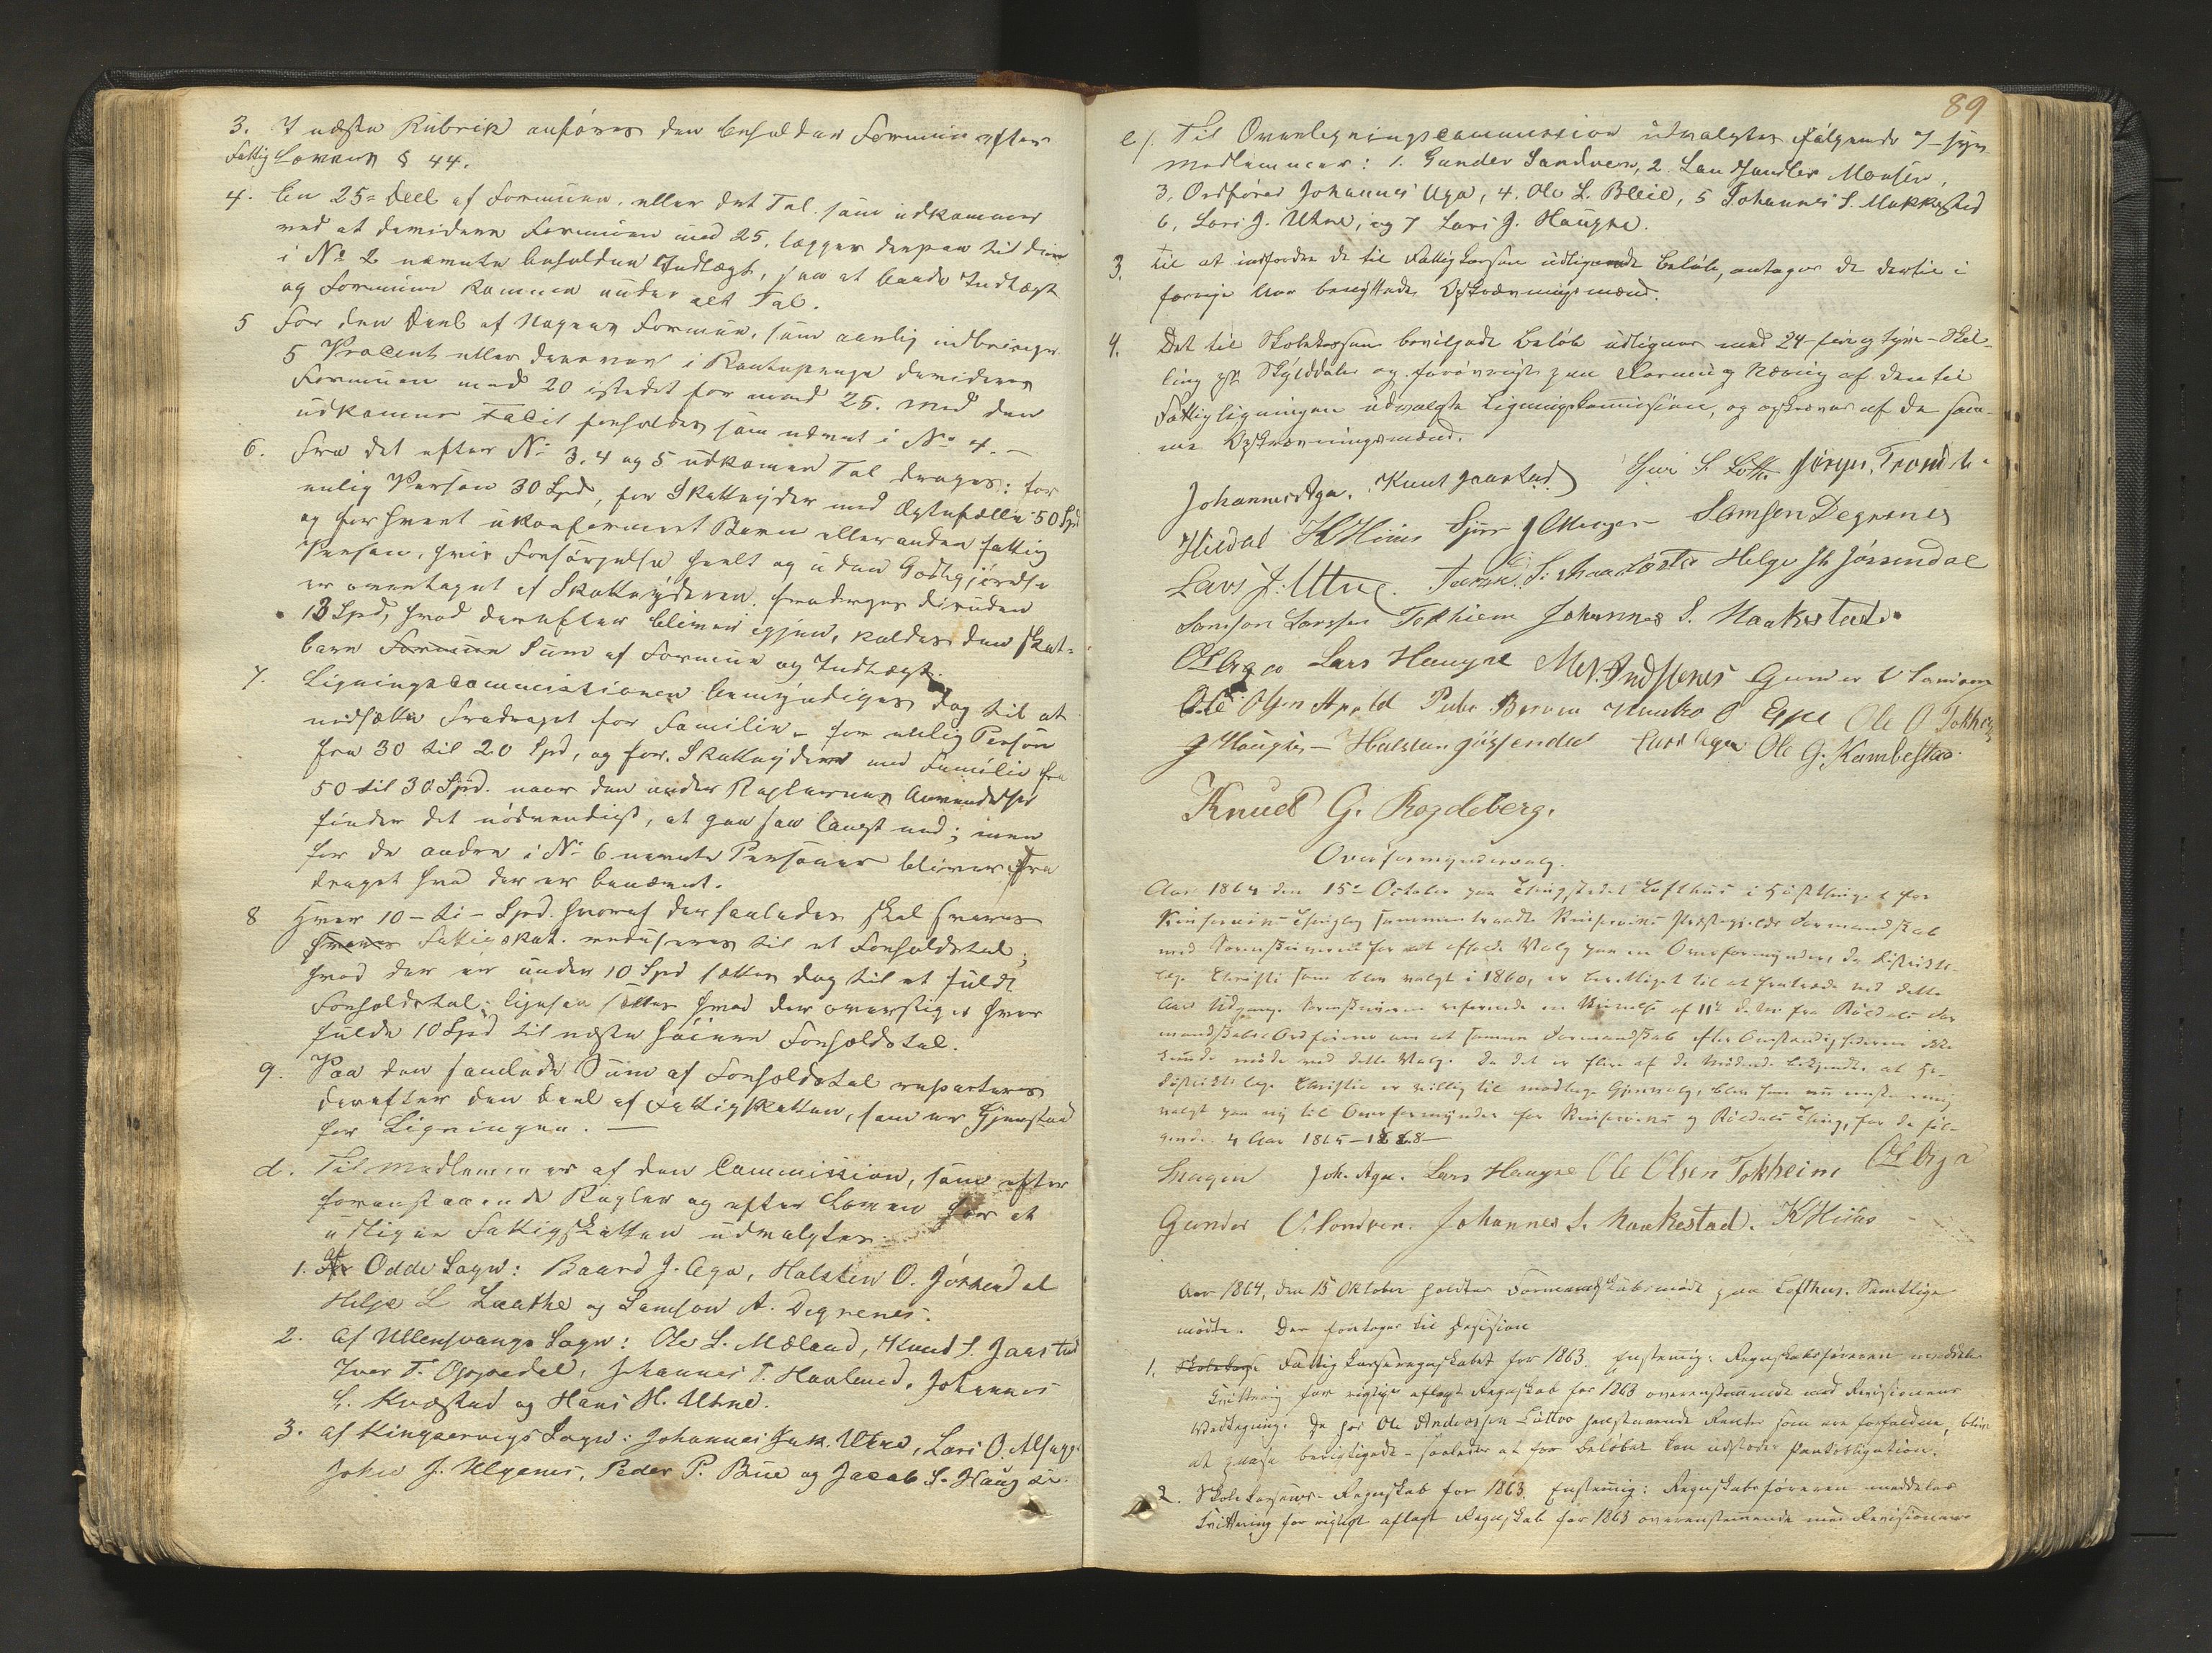 3. I næste Rubrik anføres den beholdne Formue efter
Fattig Lovens § 44.
4. En 25de Deel af Formuen, eller det Tal som udkommer
ved at dividere Formuen med 25, lægges derpaa til den
i No 2 nævnte beholdne Indtægt, saa at baade Indtægt
og Formue kommer under et Tal.
5 For den Deel af Nogens Formue, som aarlig indbringer
5 Procent eller derover i Rentepenge divideres
Formuen med 20 istedet for med 25. Med den
udkomne Facit forholdes som nævnt i No 4. —
6. Fra det efter No 3, 4 og 5 udkomne Tal drages: for
enlig Person 30 Spd, for Skatteyder med Ægtefælle 50 Spd
og for hvert ukonfirmeret Barn eller anden fattig
Person, hvis Forsørgelse heelt og uden Godtgjørelse
er overtaget af Skatteyderen, fradrages desuden
13 Spd, hvad derefter bliver igjen, kaldes den skat-
bare Formue Sum af Formue og Indtægt.
7. Ligningscommissionen bemyndiges dog til at
nedsætte Fradraget for Familie, for enlig Person
fra 30 til 20 Spd, og for Skatteydere med Familie fra
50 til 30 Spd. naar den under Reglernes Anvendelse
finder det nødvendigt, at gaa saa langt ned; men
for de andre i No 6 nævnte Personer bliver fra
draget hvad der er bestemt.
8 Hver 10 - ti - Spd. hvoraf der saaledes skal svares
svares Fattigskat, reduseres til et Forholdstal;
hvad der er under 10 Spd sættes dog til et fuldt
Forholdstal; ligesaa sættes hvad der overstiger hver
fulde 10 Spd til næste høiere Forholdstal.
9. Paa den samlede Sum af Forholdstal reparteres
derefter den Deel af Fattigskatten, som er Gjenstand
for Ligningen. —
d. Til Medlemmer af den Commission, som efter
foranstaaende Regler og efter Loven har at
udligne Fattigskatten udvalgtes
1. Af Odde Sogn: Baard J. Aga, Halsten O. Jøssendal
Helje L Laathe og Samson A. Degrenes.
2. Af Ullensvangs Sogn: Ole L. Mæland, Knud S. Jaastad
Iver T. Oppedal, Johannes T. Haaland, Johannes
L. Kvæstad og Hans H. Uhne.
3. Af Kingservigs Sogn: Johannes Jak. Utne, Lars O. Alsager
John J. Ulgenes, Peder P. Bue og Jacob S. Haugse.
89
e). Til Overligningscommission udvalgtes følgende 7 - syv
Medlemmer: 1. Gunder Sandven, 2. Landhandler Monsen,
3. Ordfører Johannes Aga, 4. Ole L. Bleie, 5 Johannes S. Makkestad
6. Lars J. Utne, og 7 Lars J. Haugse.
3. Til at indfordre de til Fattigkassen udlignede Beløb, antages de dertil i
forrige Aar benyttede Opkrævningsmænd.
4. Det til Skolekassen bevilgede Beløb udlignes med 24 - fire og tyve - Skil-
ling pr. Skylddaler og forøvrigt paa Formue og Næring af den til
Fattigligningen udvalgte Ligningskommission, og opkræves af de sam-
me Opkrævningsmænd.
Johannes Aga. Knut Jaastad
Hildal K Huus Samson Degrenes
Lars J. Utne. Helge H Jøssendal
Samson Larssen Tokhiem Johannes S. Naakestad.
O L Aga Lars Haugse Gunder
Ole Olsen Apold Peder Ole O Tokheim
J Haugse — Halsten Jøssendal Lars Aga Ole G. Kambestad.
Knud G. Rogdeberg.
Overformyndervalg.
Aar 1864 den 15de October paa Thingstedet Lofthus i Høstthinget for
Kinservik Thinglag sammentraadte Kinserviks Præstegjelds Formandskab
med Sorenskriveren for at afholde Valg paa en Overformynder, da Distrikts-
læge Christie som blev valgt i 1860, er berettiget til at fratræde ved dette
Aars Udgang. Sorenskriveren refererede en Skrivelse af 11te ds. fra Røldals For
mandskabs Ordfører om at samme Formandskab efter Omstændighederne ikke
kunde møde ved dette Valg. Da det er flere af de Mødende bekjendt, at Hr.
Distriktslæge Christie er villig til modtage Gjenvalg, blev han nu enstemmig
valgt paa ny til Overformynder for Kinserviks og Røldals Thinglag, for de føl-
gende 4 Aar 1865 — 1868 —
Hagen Joh. Aga. Lars Haugse Ole Olsen Tokheim O L Aga
Gunder Sandven. Johannes S. Naakestad. K Huus
Aar 1864, den 15 Oktober holdtes Formandskabsmøde paa Lofthus. Samtlige
mødte. Der foretoges til Decision
1. Skolekass Fattigkasseregnskabet for 1863. Enstemmig: Regnskabsføreren meddeles
Kvittering for rigtig aflagt Regnskab for 1863 overensstemmende med Revisionens
Vedtegning. De hos Ole Andersen henstaaende Renter som ere forfaldne, blive
at berigtigede — saaledes at for Beløbet kan udstedes Pantobligation.
2. Skolekassens Regnskab for 1863. Enstemmig: Regnskabsføreren meddeles
Kvittering for rigtigt aflagt Regnskab for 1863 overensstemmende med Revisionens